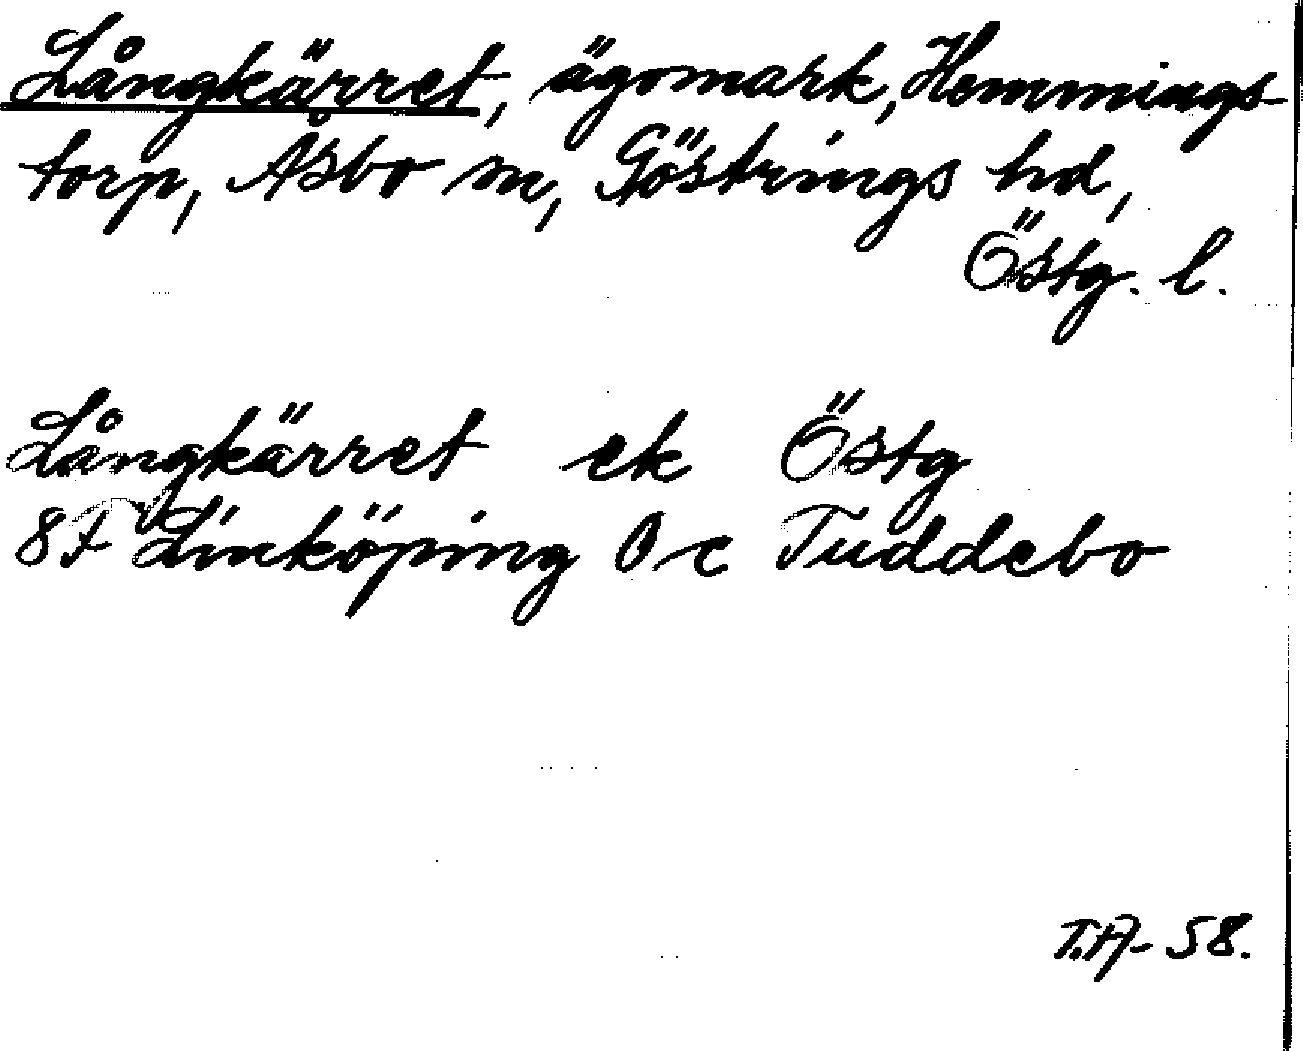 Långkärret, ägomark, Hemmings-
torp, Åsbo sn, Göstrings hd,
Östg. l.
Långkärret ek Östg
8F Linköping 0 c Tuddebo
T.A- 58.